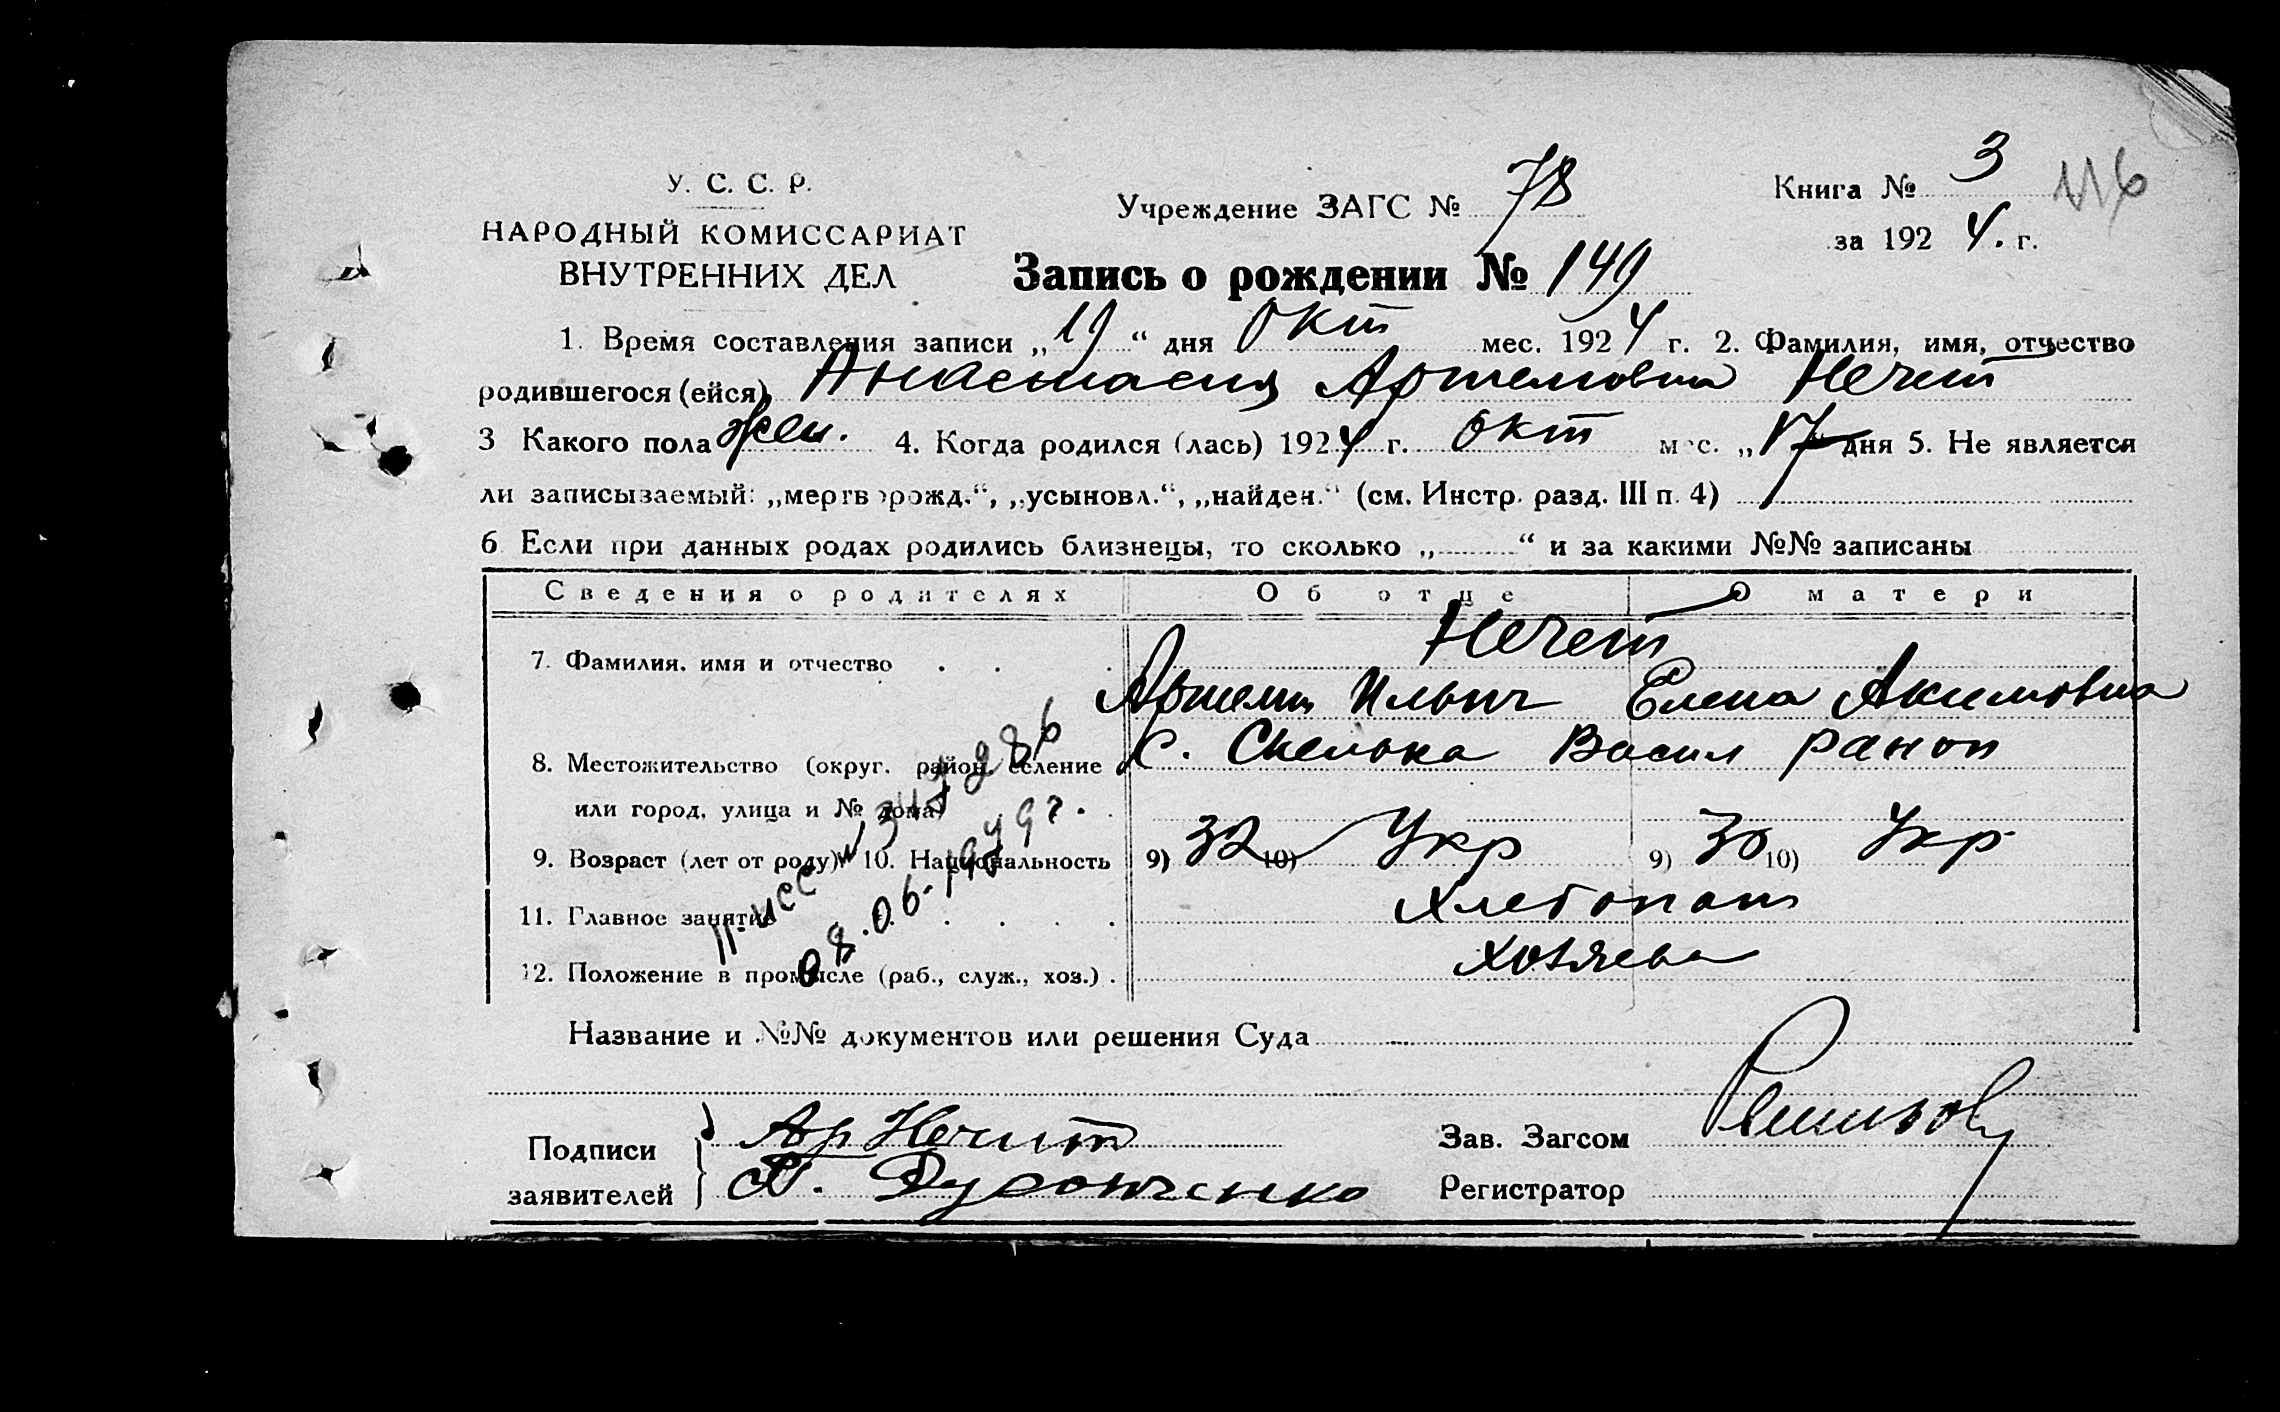 У. С. С. Р.
НАРОДНЫЙ КОМИССАРИАТ
ВНУТРЕННИХ ДЕЛ
Учреждение ЗАГС № 78
Книга № 3 116
за 192 4. г.
Запись о рождении № 149
1. Время составления записи „19“ дня Окт мес. 1924 г. 2. Фамилия, имя, отчество
родившегося (ейся) Анастасия Артемовна Нечет
3 Какого пола жен. 4. Когда родился (лась) 1924 г. окт мес. „17“ дня 5. Не является
ли записываемый: „мертворожд.“, „усыновл.“, „найден.“ (см. Инстр. разд. III п. 4)
6 Если при данных родах родились близнецы, то сколько „ “ и за какими №№ записаны
Сведения о родителях Об отце О матери
7. Фамилия, имя и отчество Нечет
Артем Ильич Елена Акимовна
8. Местожительство (округ, район, селение С. Скелька Васил район
или город, улица и № дома)
9. Возраст (лет от роду) 10. Национальность 9) 32 10) Укр 9) 30 10) Укр
11. Главное занятие Хлебопаш
12. Положение в промысле (раб., служ., хоз.) хозяева
08.06.1979г.
Название и №№ документов или решения Суда
Подписи заявителей Ар Нечит
Дусоиченко
Зав. Загсом
Регистратор